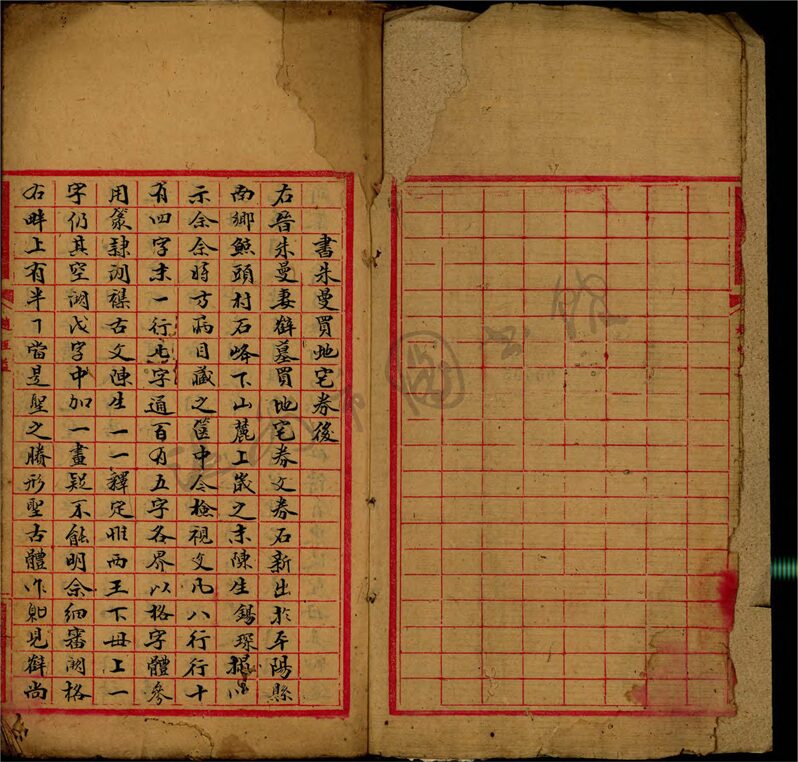 書朱曼買地宅券後
右晉朱曼妻薛墓買地宅券文券石新出於平陽縣
南鄉鯨頭村石峰下山麓上歲之末陳生錫琛搨以
示余余時方病目藏之箧中今檢視文凡八行行十
有四字末一行九字通百有五字各界以格字體參
用篆隸間襍古文陳生一一釋定惟两王下毋上一
字仍其空闕戊字中加一畫疑不能明余細審闕格
右畔上有半㇕當是聖之賸形聖古體作見薛尚